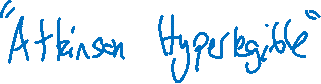 "Atkinson Hyperlegible"